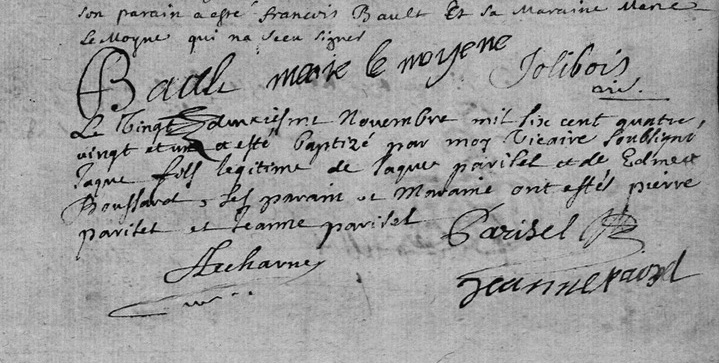 son parain a esté francois Bault Et sa Maraine Marie
Le Moyne qui na sceu signer
Bault marie le moyene Jolibois
vic.
Le Vingt deuxiesme Novembre mil six cent quatre
vingt et un a esté baptizé par moy Vicaire soubsigné
Jaque fils legitime de Jaque pariset et de Edmee
Boussard, ses parain et Maraine ont estés pierre
pariset et Jeanne pariset
Parisel
Jeanne